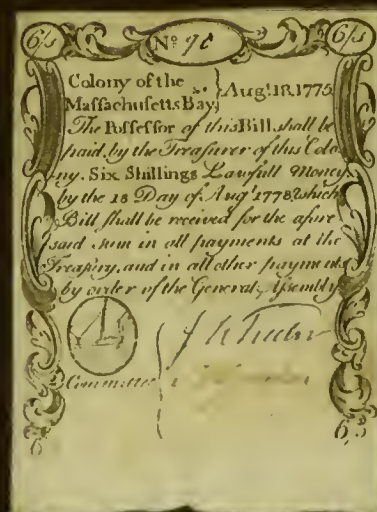 6/s Nº 6/s
Colony of the
Massachusetts Bay } Augt. 18, 1775
The Possessor of this Bill shall be
paid by the Treasurer of this Colo
ny. Six Shillings Lawfull Money
by the 18 Day of Augt. 1778, which
Bill shall be received for the afore
said Sum in all payments at the
Treasury, and in all other payments
by order of the General Assembly
Committee